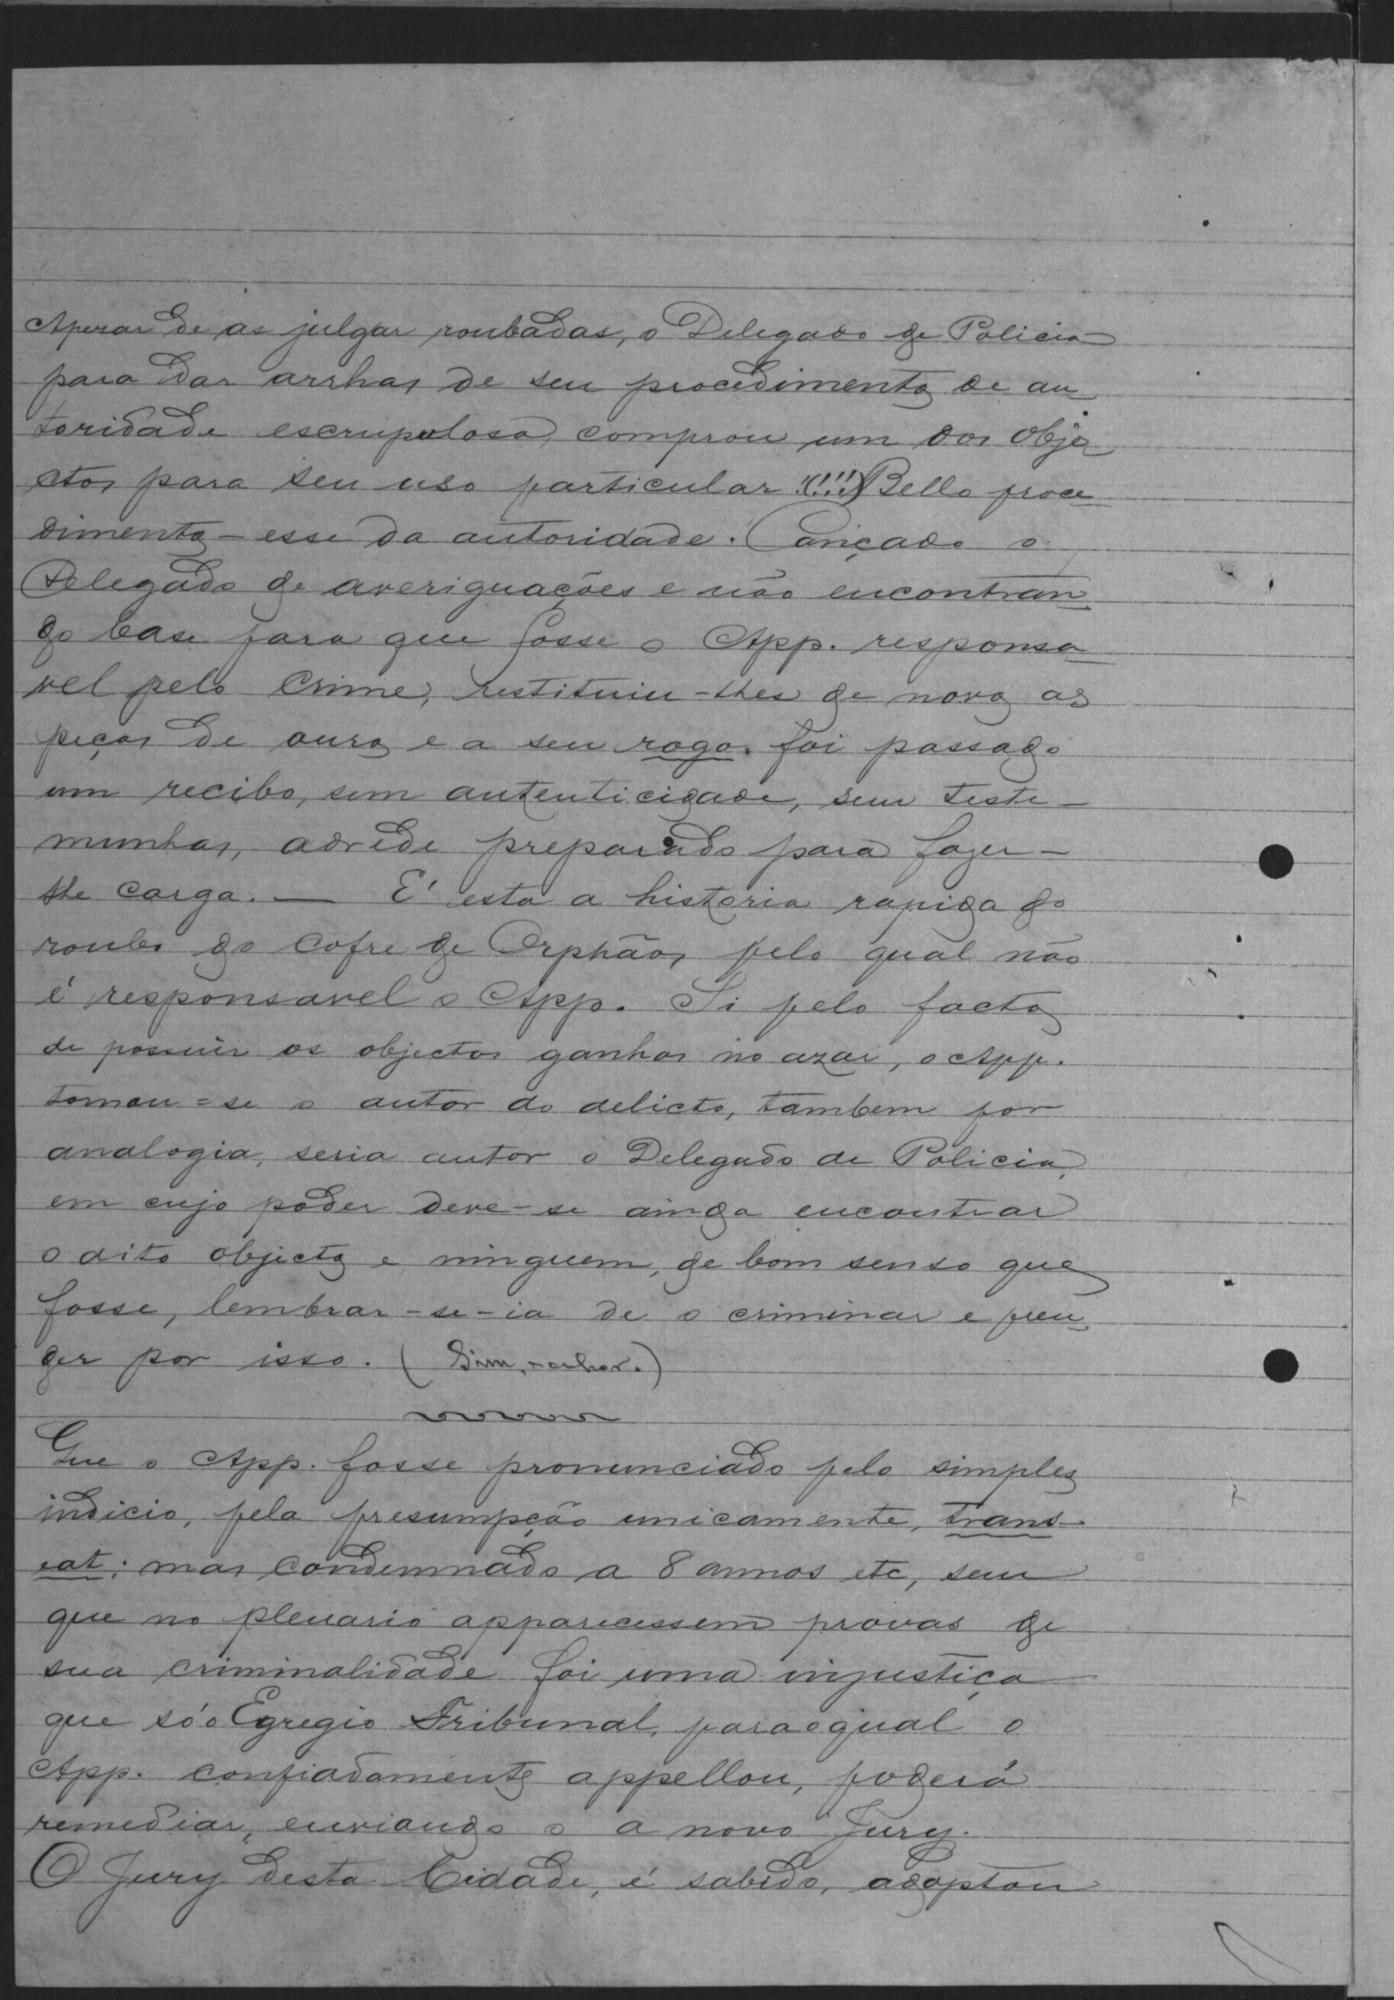 Apezar de as julgar roubadas, o Delegado de Policia
para dar arrhas de seu procedimento de au-
toridade escrupulosa, comprou um dos obje
ctos para seu uso particular!(!!!) Bello proce-
dimento - esse da autoridade. Cançado o
Delegado de averiguações e não encontran-
do base para que fosse o App. responsa-
vel pelo crime, restituiu-lhes de novo as
peças de ouro e a seu rogo foi passado
um recibo, sem autenticidade, sem teste-
munhas, adrede preparado para fazer-
lhe carga. — É esta a historia rapida do
roubo do cofre de Orphãos pelo qual não
é responsavel o App. Si pelo facto
de possuir os objectos ganhos no azar, o App.
tornou=se o autor do delicto, tambem por
analogia, seria autor o Delegado de Policia,
em cujo poder deve-se ainda encontrar
o dito objecto e ninguem, de bom senso que
fosse, lembrar-se-ia de o criminar e pren-
der por isso. (Sim, senhor.)
Que o App. fosse pronunciado pelo simples
indicio, pela presumpção unicamente, trans-
eat; mas condemnado a 8 annos etc, sem
que no plenario apparecessem provas de
sua criminalidade foi uma injustiça
que só o Egregio Tribunal, para o qual o
App. confiadamente appellou, poderá
remediar, enviando o a novo Jury.
O Jury desta Cidade, é sabido, adoptou